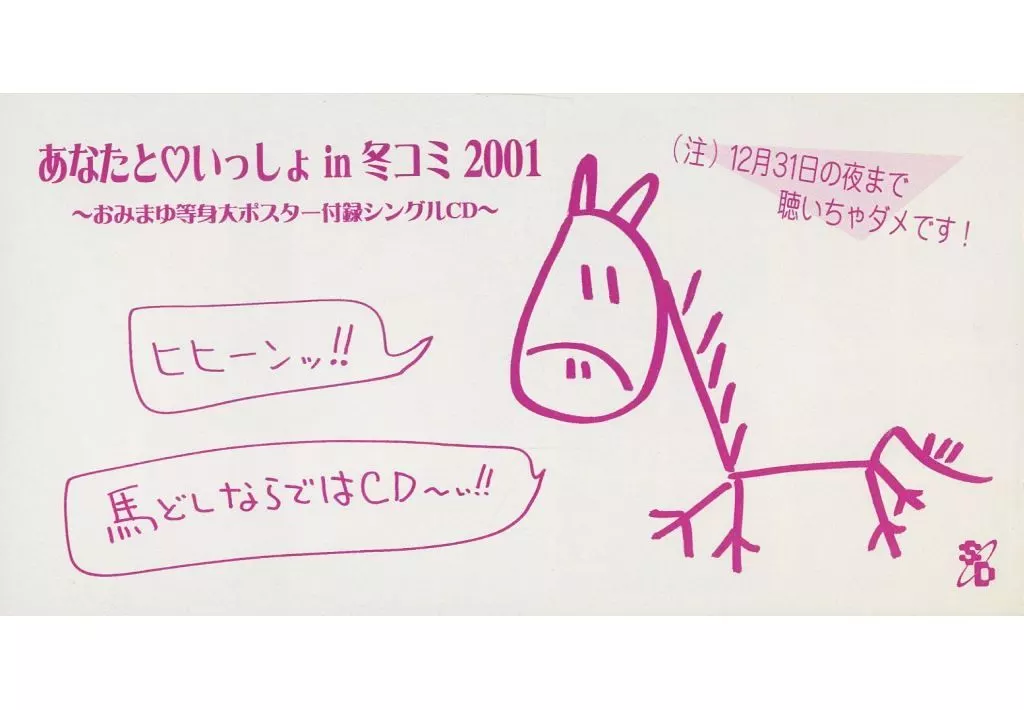 あなたと♡いっしょ in 冬コミ 2001
～おみまゆ等身大ポスター付録シングルCD～
（注）12月31日の夜まで
聴いちゃダメです！
ヒヒーンッ!!
馬どしならではCD～ぃ!!
SD